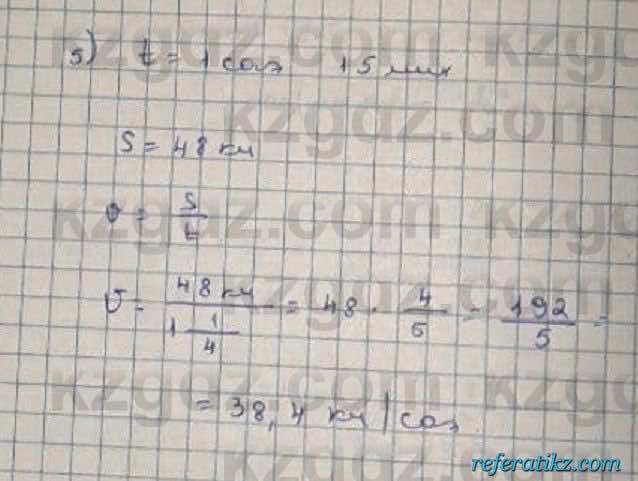 5) t = 1 саг 15 мин
S = 48 км
υ = S/t
υ = 48 км / 1 1/4 = 48 · 4/5 = 192/5 =
= 38,4 км/саг
kzgdz.com
referatikz.com